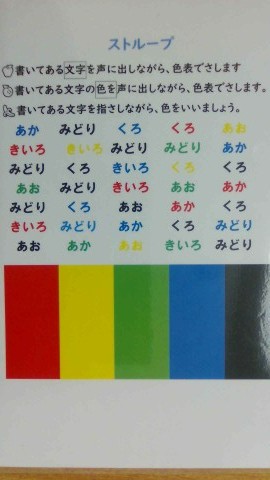 ストループ
書いてある文字を声に出しながら、色表でさします
書いてある文字の色を声に出しながら、色表でさします。
書いてある文字を指さしながら、色をいいましょう。
あか みどり くろ くろ あお
きいろ きいろ みどり みどり あか
みどり くろ きいろ くろ くろ
あお みどり きいろ あお あか
みどり くろ あお あか くろ
きいろ みどり あか くろ みどり
あお あか あお きいろ みどり